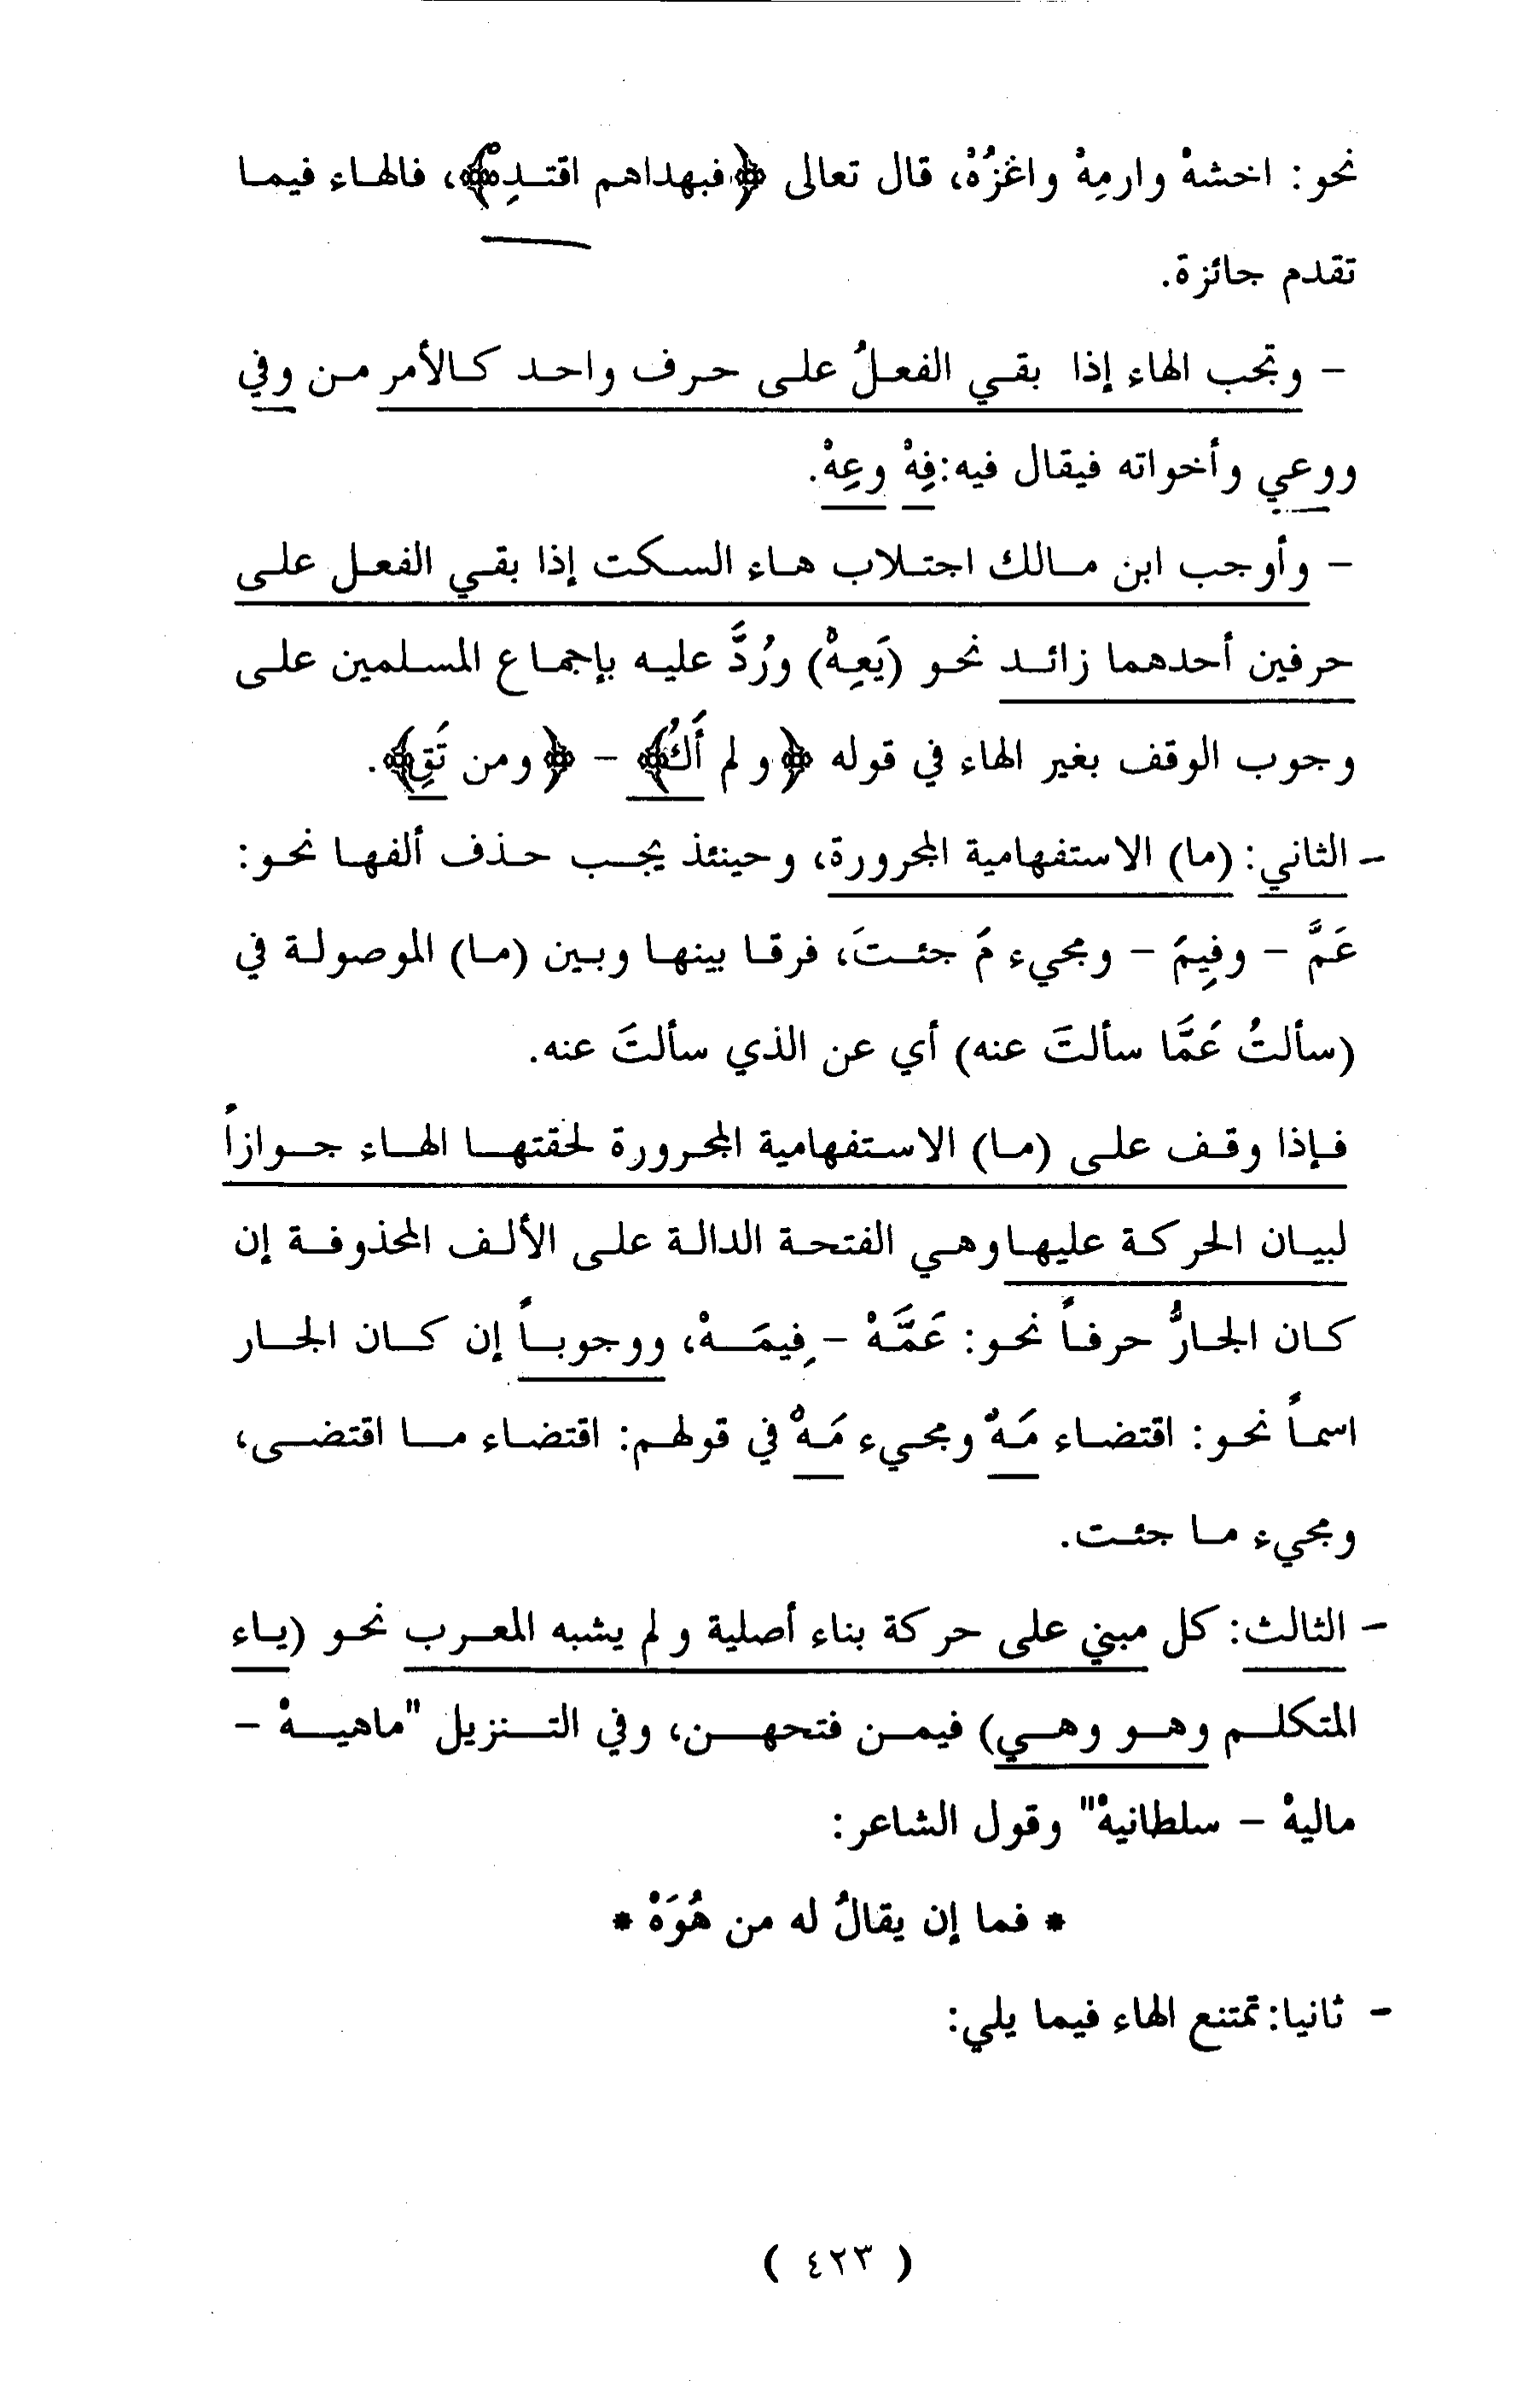 نحو: اخشهْ وارمِهْ واغزُهْ، قال تعالى ﴿فبهداهم اقتدِهْ﴾، فالهاء فيما
تقدم جائزة.
- وتجب الهاء إذا بقي الفعلُ على حرف واحد كالأمر من وفي
ووعي وأخواته فيقال فيه: فِهْ وعِهْ.
- وأوجب ابن مالك اجتلاب هاء السكت إذا بقي الفعل على
حرفين أحدهما زائد نحو (يَعِهْ) ورُدَّ عليه بإجماع المسلمين على
وجوب الوقف بغير الهاء في قوله ﴿ولم أَكُ﴾ - ﴿ومن تَقِ﴾.
- الثاني: (ما) الاستفهامية المجرورة، وحينئذ يجب حذف ألفها نحو:
عَمَّ - وفِيمَ - ومجيء مَ جئتَ، فرقا بينها وبين (ما) الموصولة في
(سألتُ عَمَّا سألتَ عنه) أي عن الذي سألتَ عنه.
فإذا وقف على (ما) الاستفهامية المجرورة لحقتها الهاء جوازاً
لبيان الحركة عليها وهي الفتحة الدالة على الألف المحذوفة إن
كان الجارُّ حرفاً نحو: عَمَّهْ - فِيمَهْ، ووجوباً إن كان الجار
اسماً نحو: اقتضاء مَهْ ومجيء مَهْ في قولهم: اقتضاء ما اقتضى،
ومجيء ما جئت.
- الثالث: كل مبني على حركة بناء أصلية ولم يشبه المعرب نحو (ياء
المتكلم وهو وهي) فيمن فتحهن، وفي التنزيل "ماهيهْ -
ماليهْ - سلطانيهْ" وقول الشاعر:
* فما إن يقالُ له من هُوَهْ *
- ثانيا: تمتنع الهاء فيما يلي:
( ٤٢٣ )